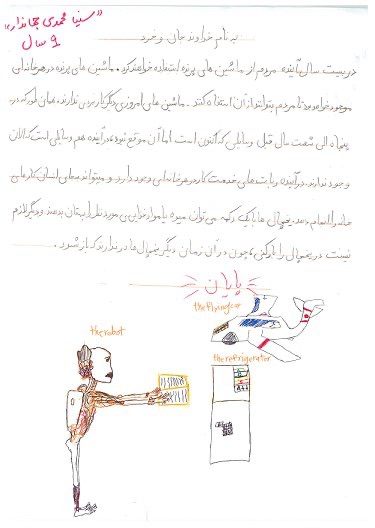 «سنیا محمدی چاندار»
۹ سال
به نام خداوند جان و خرد
در بیست سال آینده مردم از ماشین های پرنده استفاده خواهند کرد. ماشین های پرنده در هر خانه ای
موجود خواهد بود تا مردم بتوانند از آن استفاده کنند. ماشین های امروزی دیگر کاربردی ندارند، همان طور که در
پنجاه الی شصت سال قبل وسایلی که اکنون است اما آن موقع نبود، در آینده هم وسایلی است که الان
وجود ندارند. در آینده ربات های خدمت کار در هر خانه ای وجود دارد و میتواند تمامی انسان کارهای
خانه را انجام دهد. یخچال ها با یک دکمه می توان میوه یا مواد غذایی مورد نظر را به تان بدهند و دیگر لازم
نیست در یخچال را باز کنی، چون در آن زمان دیگر یخچال ها در ندارند که باز شود.
پایان
the flying car
the robot
the refrigerator